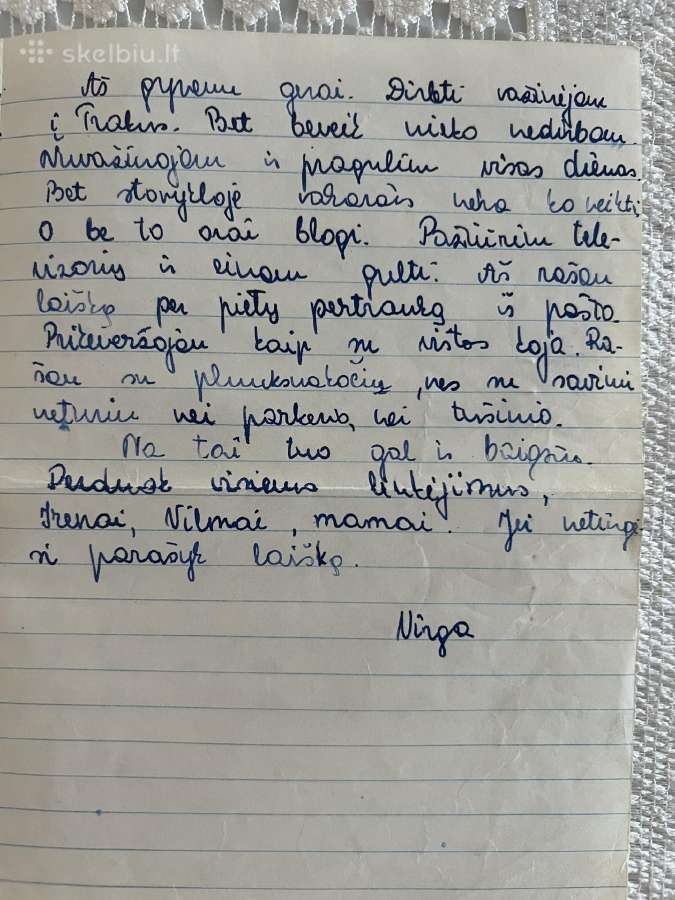 skelbiu.lt
Aš gyvenu gerai. Dirbti važinėjam
į Trakus. Bet beveik nieko nedirbam.
Nuvažiuojam ir pragulim visas dienas.
Bet stovykloje vakarais nėra ko veikti
O be to orai blogi. Pažiūrim tele-
vizorių ir einam gulti. Aš rašau
laišką per pietų pertrauką iš pašto.
Prikeverzojau kaip su vištos koja. Ra-
šau su plunksnakočiu, nes su savimi
neturiu nei parkerio, nei tušinio.
Na tai tuo gal ir baigsiu.
Perduok visiems linkėjimus,
Irenai, Vilmai, mamai. Jei netingė-
si parašyk laišką.
Virga